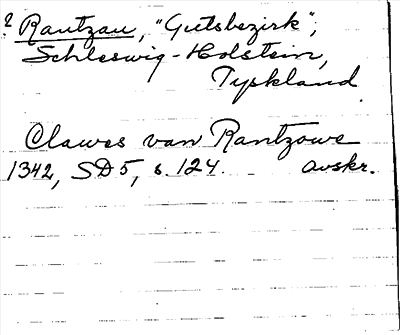 ? Rantzau, "Gutsbezirk";
Schleswig-Holstein,
Tyskland
Clawes van Rantzowe
1342, SD5, s. 124. avskr.